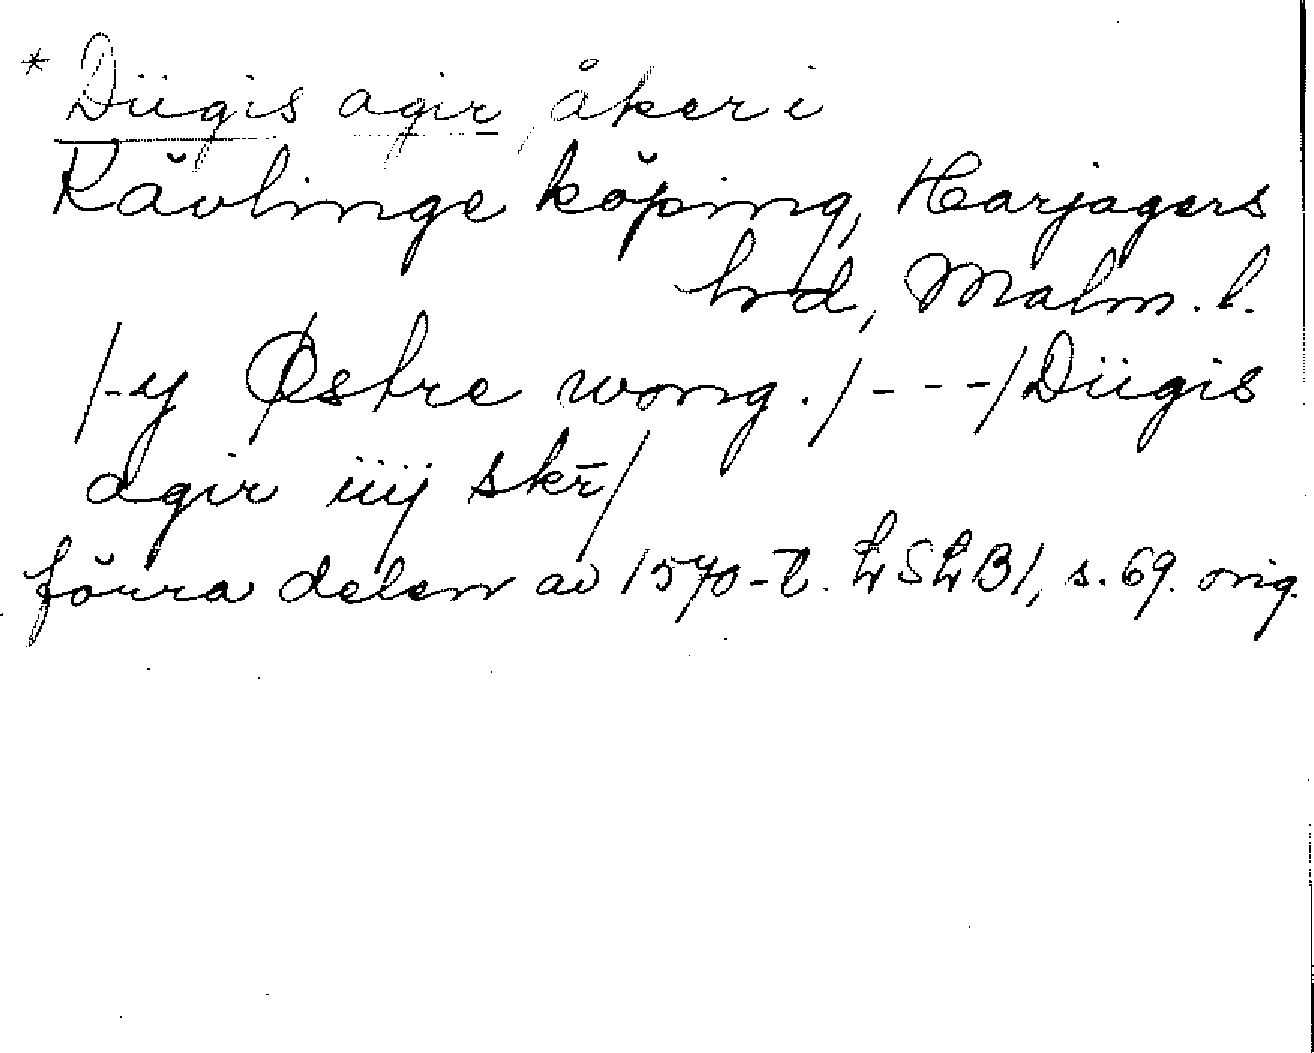 * Diigis agir, åker i
Kävlinge köping, Harjagers
hrd, Malm. l.
/-y Østre wong./---/Diigis
agir iiij skr̄/
förra delen av 1570-t. LSLB1, s. 69. orig.